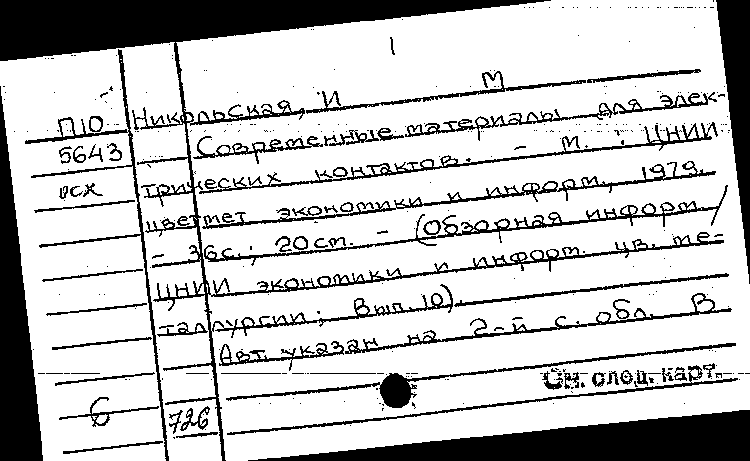 1
П10 Никольская, И М
5643 Современные материалы для элек-
осх трических контактов. - М. : ЦНИИ
цветмет экономики и информ., 1979.
- 36с.; 20см. - (Обзорная информ./
ЦНИИ экономики и информ. цв. ме-
таллургии; Вып. 10).
Авт. указан на 2-й с. обл. В
См. след. карт.
6 726